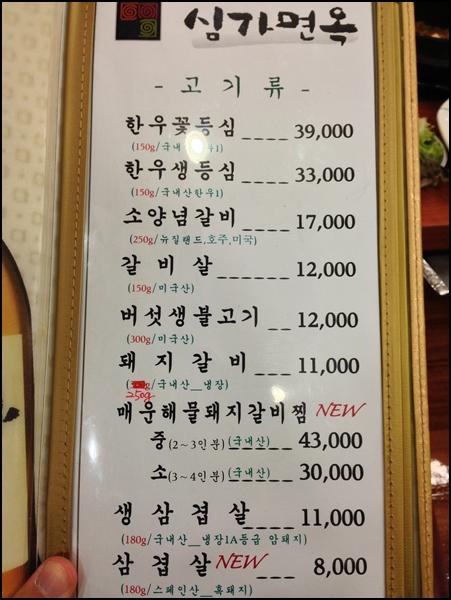 심가면옥
- 고기류 -
한우꽃등심 ____ 39,000
(150g/국내 1)
한우생등심 ____ 33,000
(150g/국내산한우1)
소양념갈비 ____ 17,000
(250g/뉴질랜드,호주,미국)
갈비살 _______ 12,000
(150g/미국산)
버섯생불고기 __ 12,000
(300g/미국산)
돼지갈비 ____ 11,000
( g/국내산__냉장)
250g
매운해물돼지갈비찜 NEW
중(2~3인분)(국내산)__ 43,000
소(3~4인분)(국내산)__ 30,000
생삼겹살 ____ 11,000
(180g/국내산__냉장1A등급 암돼지)
삼겹살 NEW ___ 8,000
(180g/스페인산__흑돼지)